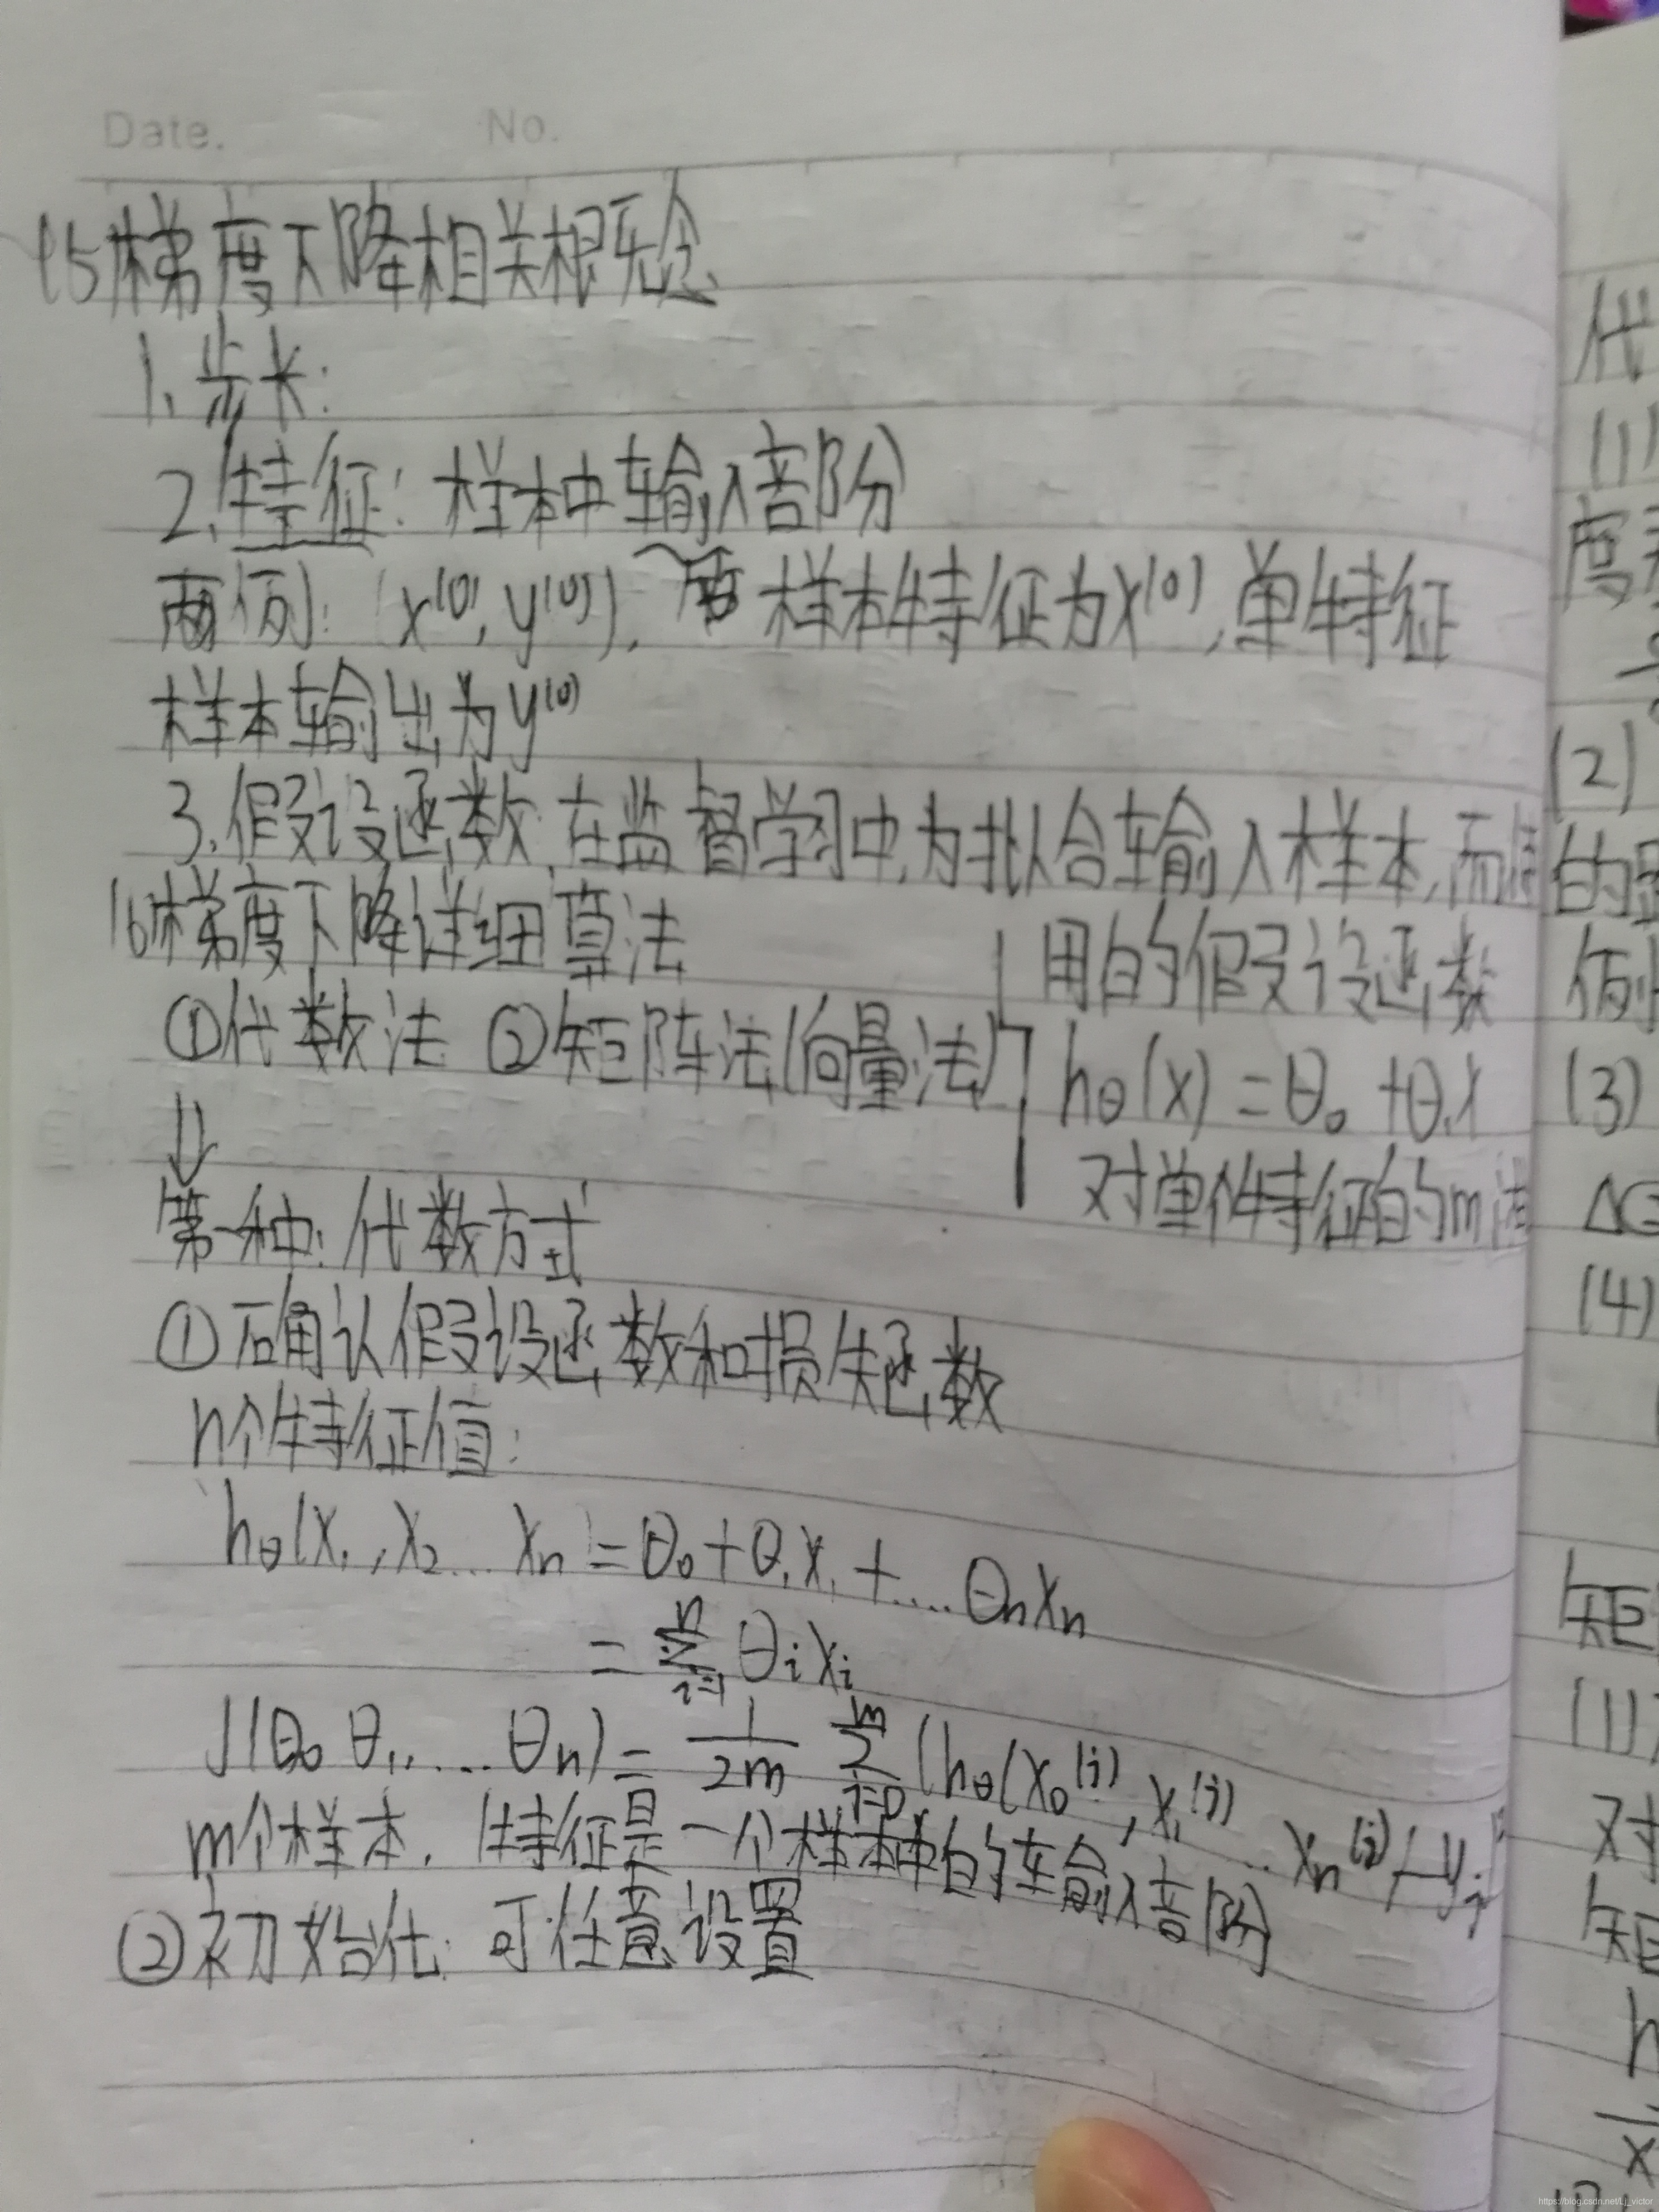 Date. No.
15梯度下降相关概念
1、步长:
2.特征: 样本中输入部分
两例: (x⁽⁰⁾, y⁽⁰⁾), 样本特征为x⁽⁰⁾, 单特征
样本输出为y⁽⁰⁾
3.假设函数,在监督学习中,为拟合输入样本,而使
用的假设函数
hθ(x) = θ₀ + θ₁x
对单个特征的m
16梯度下降详细算法
①代数法 ②矩阵法(向量法)
⇓
第一种: 代数方式
①确认假设函数和损失函数
n个特征值:
hθ(x₁, x₂... xₙ) = θ₀ + θ₁x₁ + .... θₙxₙ
= Σⁿᵢ₌₁ θᵢxᵢ
J(θ₀ θ₁,..... θₙ) = 1/2m Σᵐᵢ₌₀ (hθ(x₀⁽ʲ⁾, x₁⁽ʲ⁾ ... xₙ⁽ʲ⁾) - yⱼ
m个样本, 特征是一个样本中的输入部分
②初始化: 可任意设置
代
(1)
度
(2)
的
例
(3)
(4)
矩
(1)
对
矩
h
x
https://blog.csdn.net/Lj_victor